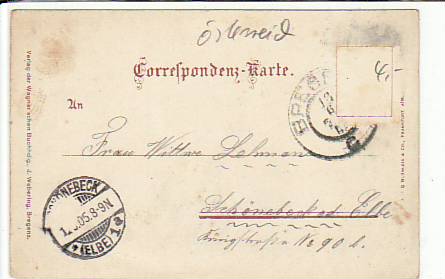 Österreich
Correspondenz-Karte.
4,-
An
BREG
Frau Wittwe Lehmann
Schönebeck a/d. Elbe
Königstraße No 90 b.
SCHÖNEBECK
05.8-9N
(ELBE) 1a
Verlag der Wagner'schen Buchhdlg., J. Webering, Bregenz.